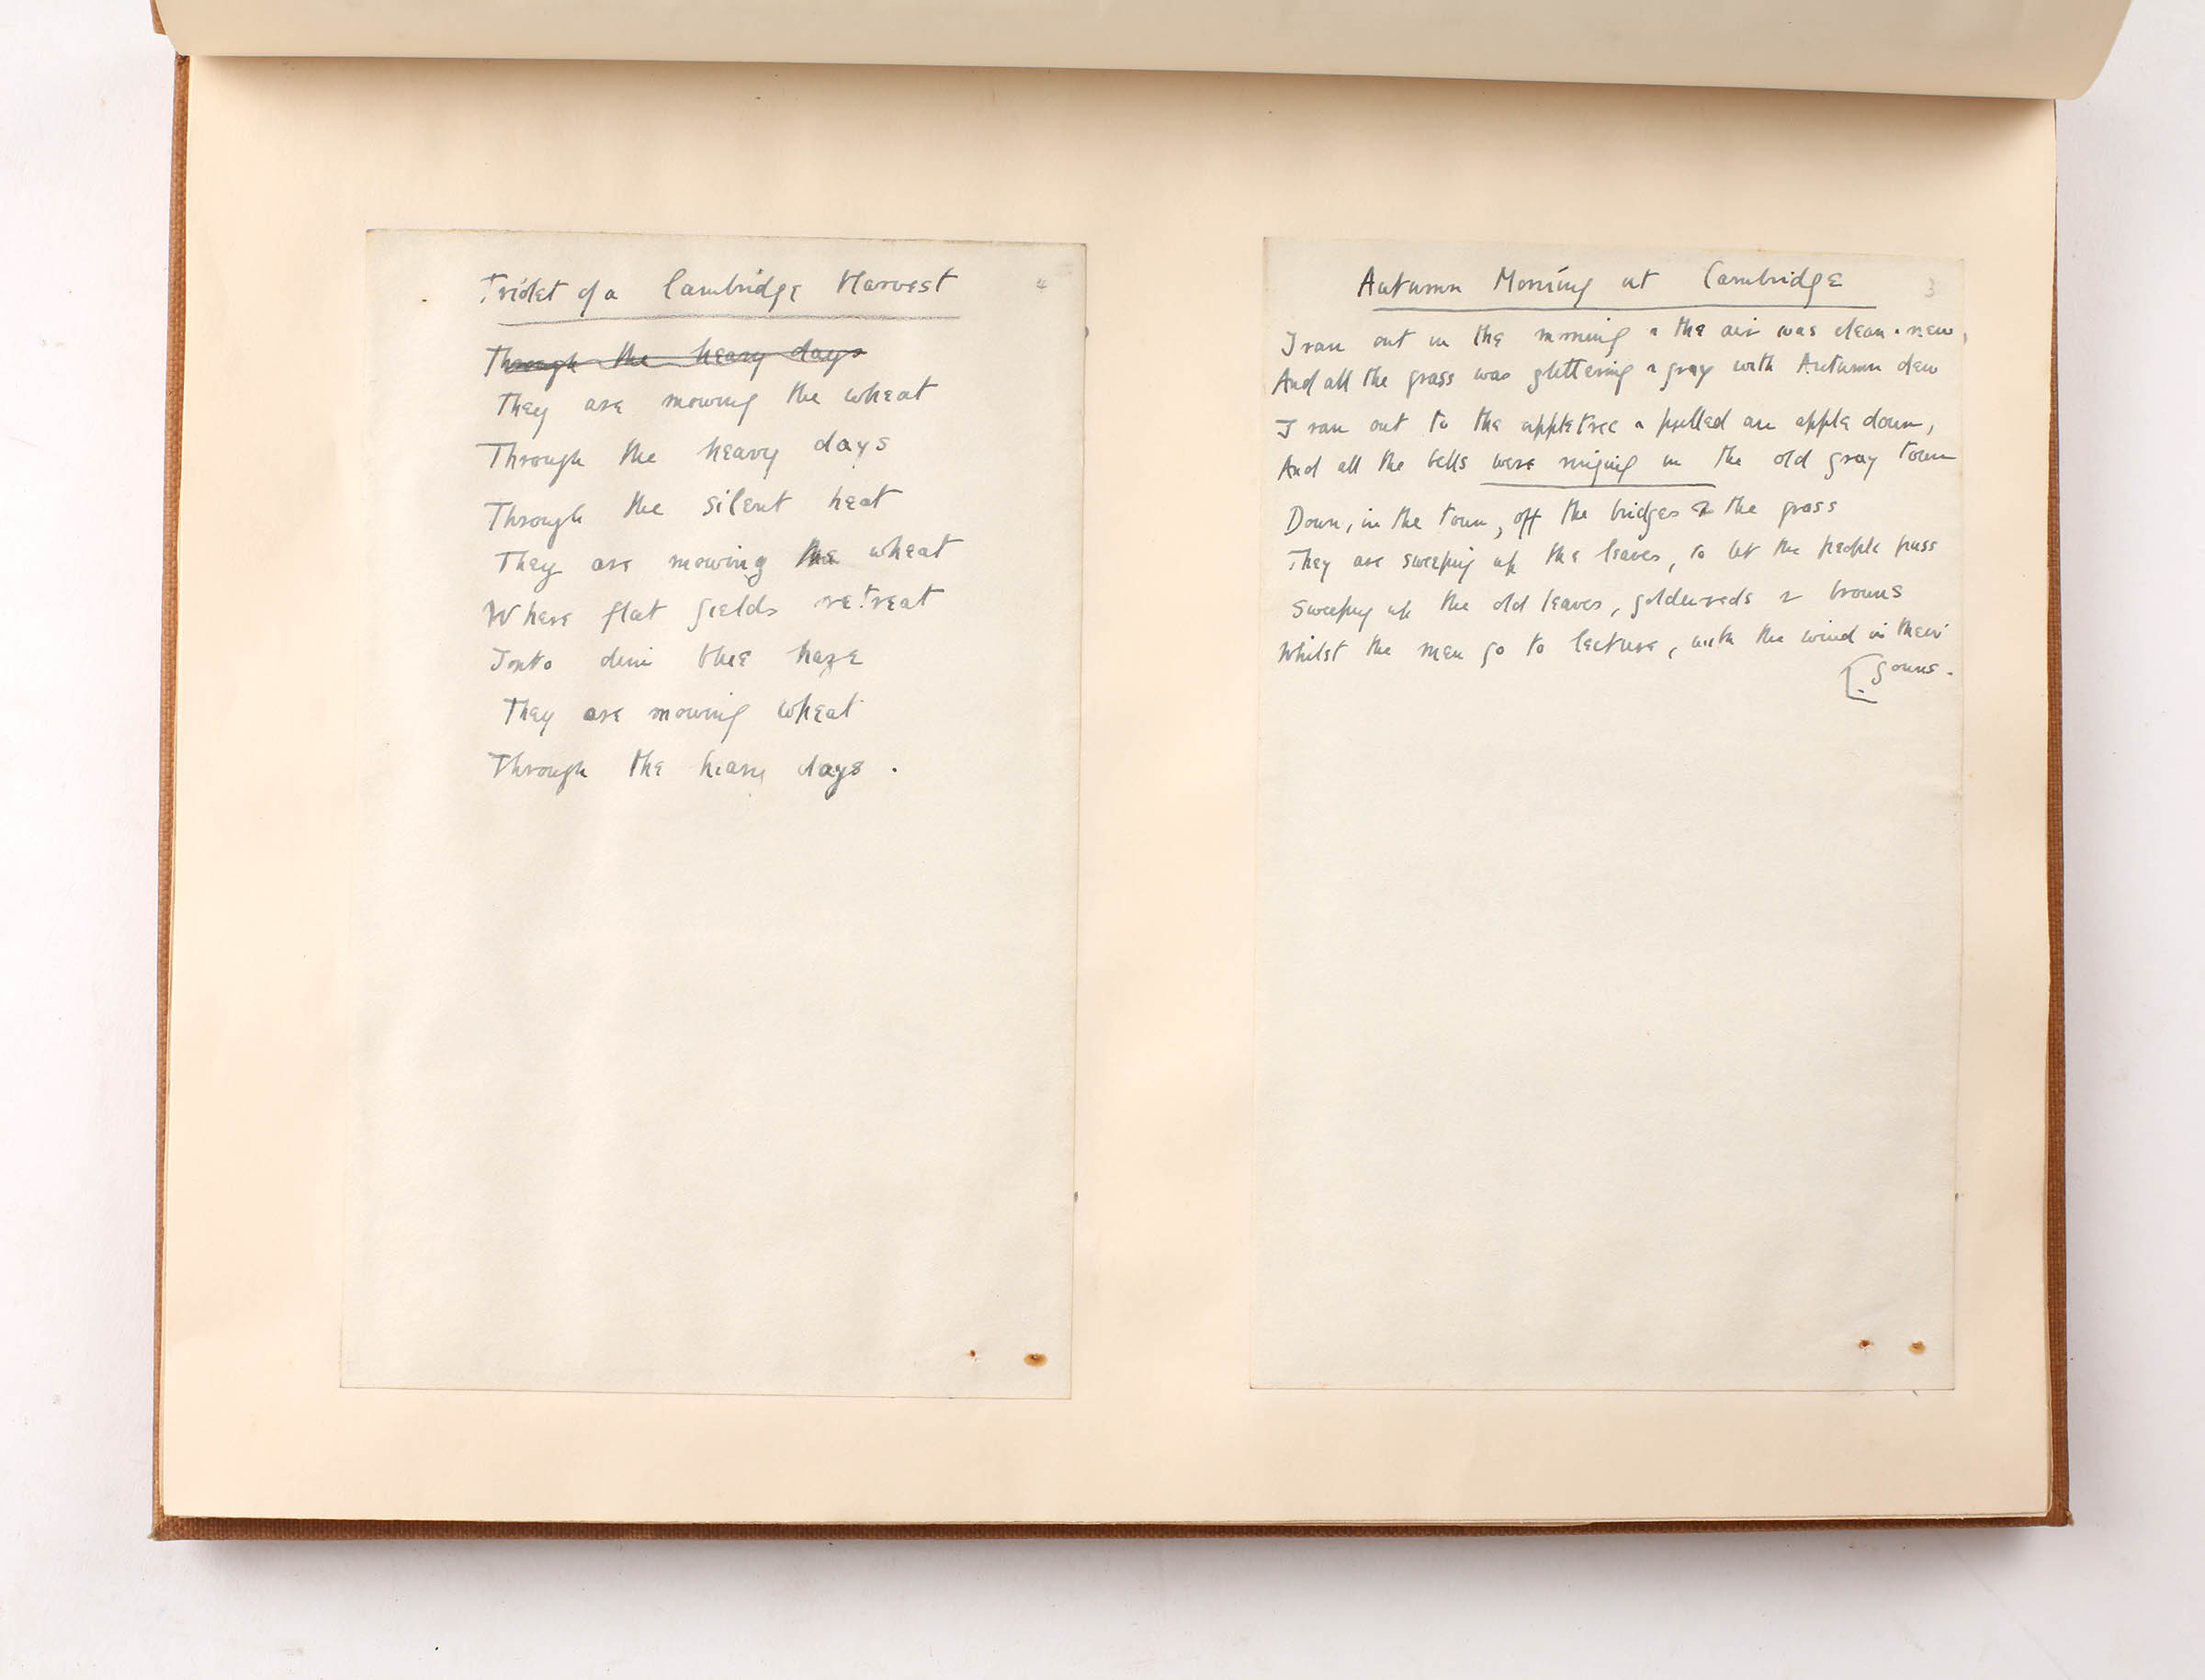 Triolet of a Cambridge Harvest
4
Through the heavy days
They are mowing the wheat
Through the heavy days
Through the silent heat
They are mowing the wheat
Where flat fields retreat
Into dim blue haze
They are mowing wheat
Through the heavy days.
Autumn Morning at Cambridge
3
I ran out in the morning & the air was clean & new,
And all the grass was glittering & gray with Autumn dew
I ran out to the appletree & pulled an apple down,
And all the bells were ringing in the old gray town
Down, in the town, off the bridges & the grass
They are sweeping up the leaves, to let the people pass
Sweeping up the old leaves, golden-reds & browns
Whilst the men go to lecture, with the wind in their
[gowns.